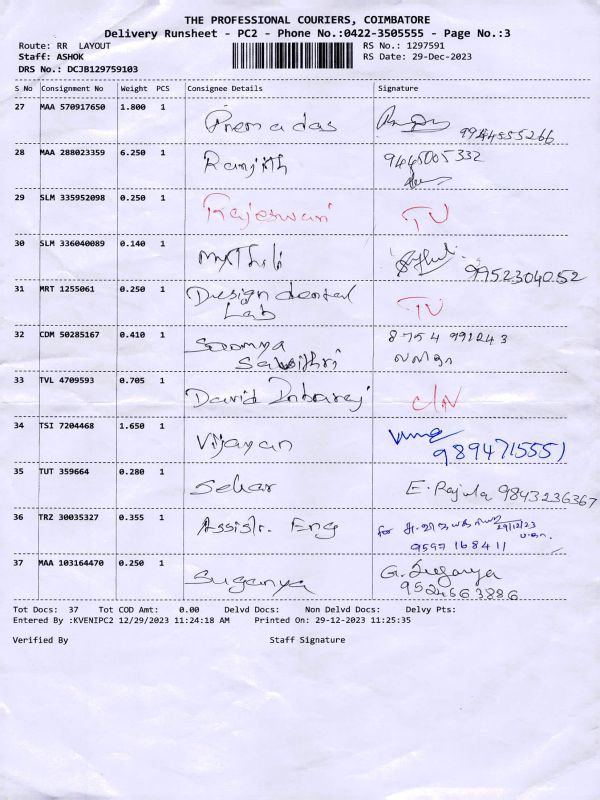 THE PROFESSIONAL COURIERS, COIMBATORE
Delivery Runsheet - PC2 - Phone No.:0422-3505555 - Page No.:3
Route: RR LAYOUT RS No.: 1297591
Staff: ASHOK RS Date: 29-Dec-2023
DRS No.: DCJB129759103
S No Consignment No Weight PCS Consignee Details Signature
27 MAA 570917650 1.800 1 Premadas
28 MAA 288023359 6.250 1 Ranjith 9445005332
29 SLM 335952098 0.250 1 Rajeswari TV
30 SLM 336040089 0.140 1 Mythili 9952304052
31 MRT 1255061 0.250 1 Design dental
Lab TV
32 CDM 50285167 0.410 1 Sowmya 8754 991243
Savithri லலிதா
33 TVL 4709593 0.705 1 David Inbaraj
34 TSI 7204468 1.650 1 Vijayan
9894715551
35 TUT 359664 0.280 1 Sekar E. Rajula 9843236367
36 TRZ 30035327 0.355 1 Assistr. Eng for 29/12/23
9597168411
37 MAA 103164470 0.250 1 Suganya G. Suganya
9524563886
Tot Docs: 37 Tot COD Amt: 0.00 Delvd Docs: Non Delvd Docs: Delvy Pts:
Entered By :KVENIPC2 12/29/2023 11:24:18 AM Printed On: 29-12-2023 11:25:35
Verified By Staff Signature